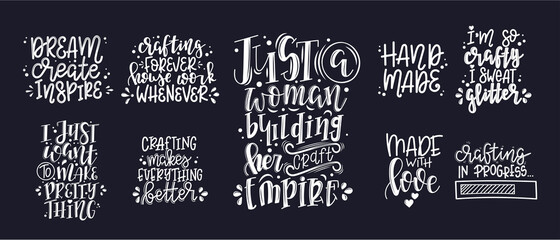 DREAM
create
INSPIRE
crafting
FOREVER
house work
WHENEVER
JUST a
woman
building
her CRAFT
EMPIRE
HAND
MADE
I'M SO
crafty
I SWEAT
glitter
I JUST
want
TO MAKE
PRETTY
THING
CRAFTING
makes
EVERYTHING
better
MADE
WITH
love
crafting
IN PROGRESS...